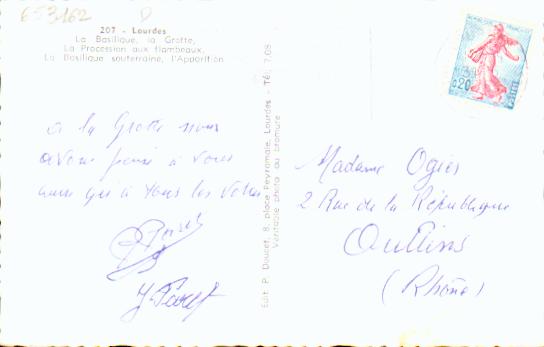 653162
207 - Lourdes
La Basilique, la Grotte,
La Procession aux flambeaux,
La Basilique souterraine, l'Apparition
a la Grotte nous
avons pensé à vous
ainsi qu'à tous les vôtres
Edit. P. Doucet, 8, place Peyramale, Lourdes - Tél. 7.08
Véritable photo au bromure
0,20
Madame Ogier
2 Rue de la République
Oullins
(Rhône)